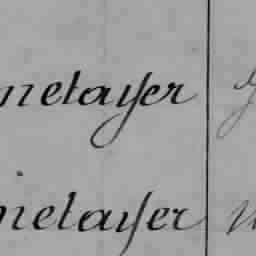 metayer
metayer